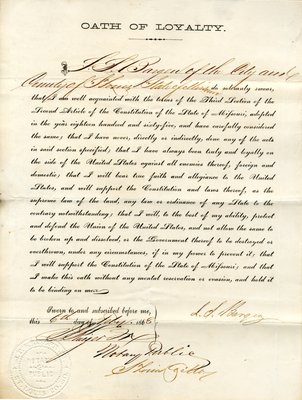 OATH OF LOYALTY.
I, of the City and
County of State of do solemnly swear,
that I am well acquainted with the terms of the Third Section of the
Second Article of the Constitution of the State of Missouri, adopted
in the year eighteen hundred and sixty-five, and have carefully considered
the same; that I have never, directly or indirectly, done any of the acts
in said section specified; that I have always been truly and loyally on the
side of the United States against all enemies thereof, foreign and
domestic; that I will bear true faith and allegiance to the United
States, and will support the Constitution and laws thereof, as the
supreme law of the land, any law or ordinance of any State to the
contrary notwithstanding; that I will, to the best of my ability, protect
and defend the Union of the United States, and not allow the same to
be broken up and dissolved, or the Government thereof to be destroyed or
overthrown, under any circumstances, if in my power to prevent it; that
I will support the Constitution of the State of Missouri; and that
I make this oath without any mental reservation or evasion, and hold it
to be binding on me.
Sworn to and subscribed before me,
this day of 186
Notary Public